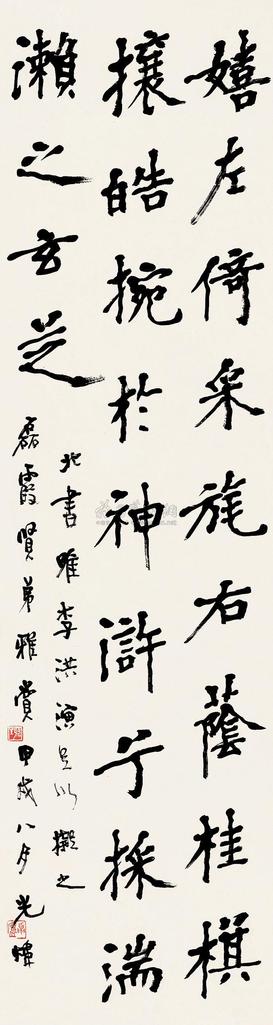 嬉左倚采旄右蔭桂棋
攘皓捥於神滸兮採湍
瀨之玄芝
北書唯李洪演足以擬之
磊霞賢弟雅賞甲戌八月光煒